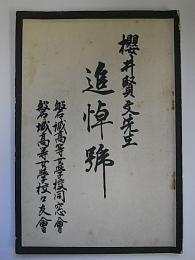 櫻井賢三先生
追悼號
磐城高等女學校同窓會
磐城高等女學校校友會